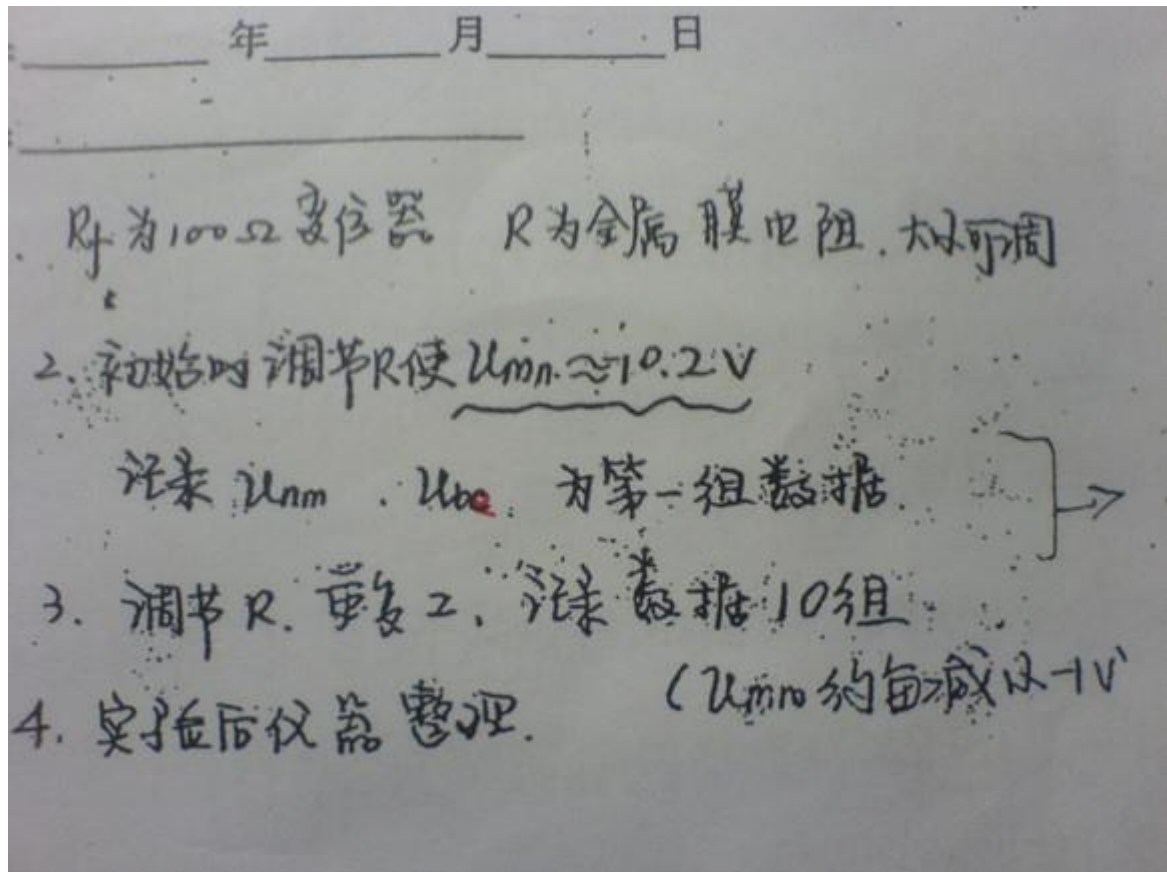 年 月 日
Rf为100Ω变位器 R为金属膜电阻.大小可调
2.初始时调节R使Umn≈10.2V
记录Unm.Ube.为第一组数据.
3.调节R.重复2.记录数据10组
(Umn约每减以-1V
4.实验后仪器整理.